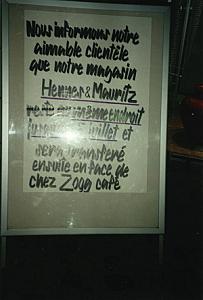 Nous informons notre
aimable clientèle
que notre magasin
Hennes & Mauritz
reste au même endroit
jusqu'au juillet et
sera transferé
ensuite en face de
chez Zogg café